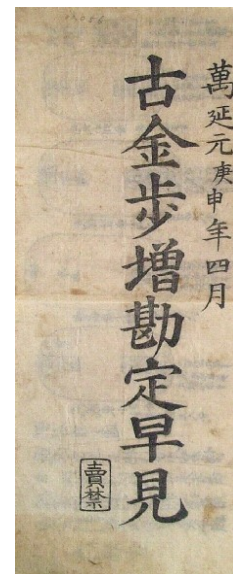 萬延元庚申年四月
古金歩増勘定早見
賣禁